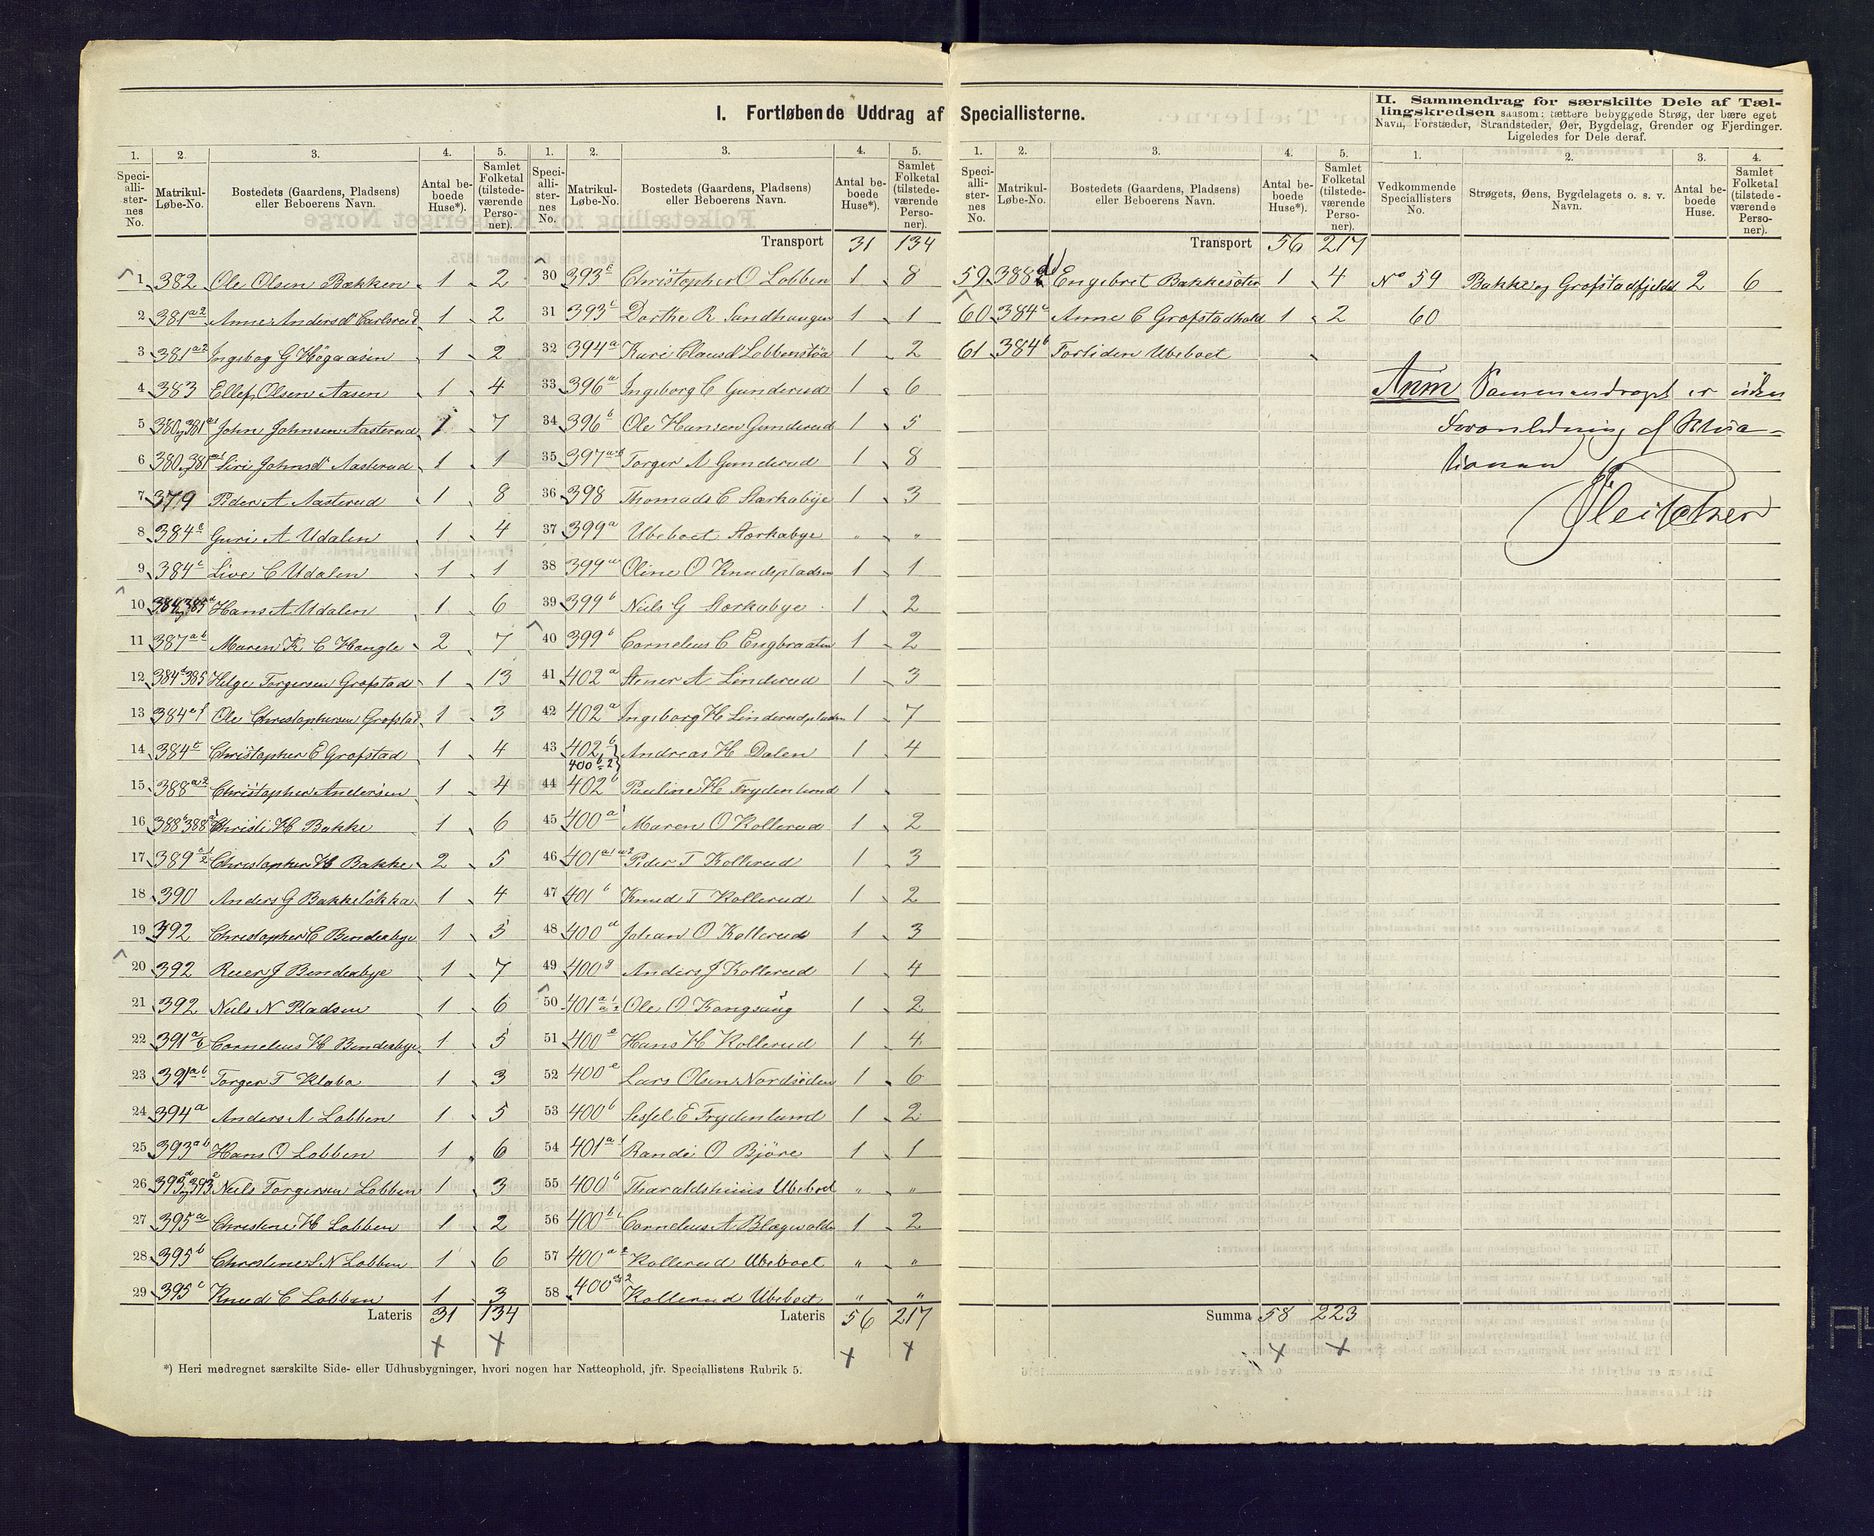 I. Fortløbende Uddrag af Speciallisterne.
II. Sammendrag for særskilte Dele af Tællingskredsen saasom: tættere bebyggede Strøg, der bære eget
Navn, Forstæder, Strandsteder, Øer, Bygdelag, Grender og Fjerdinger.
Ligeledes for Dele deraf.
1. 2. 3. 4. 5.
Speciallisternes No. Matrikul-Løbe-No. Bostedets (Gaardens, Pladsens) eller Beboerens Navn. Antal beboede Huse*). Samlet Folketal (tilstedeværende Personer).
1 382 Ole Olsen Bækken 1 2
2 381 a2 Anne Andersd Carlsrud 1 2
3 381 a2 Ingebog G Høgaasen 1 2
4 383 Ellef Olsen Aasen 1 4
5 380 381 a1 John Johnsen Aasterud 1 7
6 380 381 a1 Siri Johnsd Aasterud 1 1
7 379 Peder A Aasterud 1 8
8 384 c Guri A Udalen 1 4
9 384 c Live C Udalen 1 1
10 384 385 a Hans A Udalen 1 6
11 387 a b Maren K C Haugle 2 7
12 384 d 385 Helge Torgersen Grofstad 1 13
13 384 a f Ole Christophersen Grofstad 1 3
14 384 e Christopher E Grofstad 1 4
15 388 a2 Christopher Andersen 1 4
16 388 b 388 a1 Christi H Bakke 1 6
17 389 a 1/2 Christopher H Bakke 2 5
18 390 Anders G Bakkeløkka 1 4
19 392 Christopher C Benderbye 1 3
20 392 Reier J Benderbye 1 7
21 392 Niels N Pladsen 1 6
22 391 a/b Cornelius H Benderbye 1 5
23 391 a b Torger T Klaba 1 3
24 394 a Anders A Lobben 1 5
25 393 a b Hans O Lobben 1 6
26 393 d 393 e Niels Torgersen Lobben 1 3
27 395 a Christine H Lobben 1 2
28 395 b Christine S N Lobben 1 6
29 395 c Knud C Lobben 1 3
Lateris 31 134
*) Heri medregnet særskilte Side- eller Udhusbygninger, hvori nogen har Natteophold, jfr. Speciallistens Rubrik 5.
1. 2. 3. 4. 5.
Speciallisternes No. Matrikul-Løbe-No. Bostedets (Gaardens, Pladsens) eller Beboerens Navn. Antal beboede Huse*). Samlet Folketal (tilstedeværende Personer).
Transport 31 134
30 393 c Christopher O Lobben 1 8
31 393 c Dorthe R Sandhaugen 1 1
32 394 a Kari Clausd Lobbenstøa 1 2
33 396 a Ingeborg C Gunderud 1 6
34 396 b Ole Hansen Gunderud 1 5
35 397 a-b Torger A Gunderud 1 8
36 398 Thomads C Størkabye 1 3
37 399 a Ubeboet Størkabye " "
38 399 a Oline O Knudspladsen 1 1
39 399 b Niels G Størkabye 1 2
40 399 b Cornelius C Engbraaten 1 2
41 402 a Stener A Linderud 1 3
42 402 a Ingeborg H Linderudpladsen 1 7
43 402 b 400 b-2 Andreas H Dalen 1 4
44 402 b Pauline H Frydenlund 1
45 400 a1 Maren O Kollerud 1 2
46 401 a1 a2 Peder T Kollerud 1 3
47 401 b Knud T Kollerud 1 2
48 400 d Johan O Kollerud 1 3
49 400 g Anders J Kollerud 1 4
50 401 a1 a2 Ole O Kongsang 1 2
51 400 e Hans H Kollerud 1 4
52 400 e Lars Olsen Nordsiden 1 6
53 400 b Sissel E Frydenlund 1 2
54 401 a1 Randi O Bjøre 1 1
55 400 b Tharaldshuus Ubeboet " "
56 400 b1 Cornelius A Blegvolden 1 2
57 400 a2 Kollerud Ubeboet " "
58 400 a2 Kollerud Ubeboet " "
Lateris 56 217
1. 2. 3. 4. 5.
Speciallisternes No. Matrikul-Løbe-No. Bostedets (Gaardens, Pladsens) eller Beboerens Navn. Antal beboede Huse*). Samlet Folketal (tilstedeværende Personer).
Transport 56 217
59 388 Engebret Bakkesøten 1 4
60 384 c Anne C Grofstadhold 1 2
61 384 b Fortiden Ubeboet
Summa 58 223
1. 2. 3. 4.
Vedkommende Speciallisters No. Strøgets, Øens, Bygdelagets o. s. v. Navn. Antal beboede Huse. Samlet Folketal (tilstedeværende Personer).
No 59 Bakke og Grofstadfjeldet 2 6
60
Anm Sammendraget er uden
Foranledning af Situa-
tionen